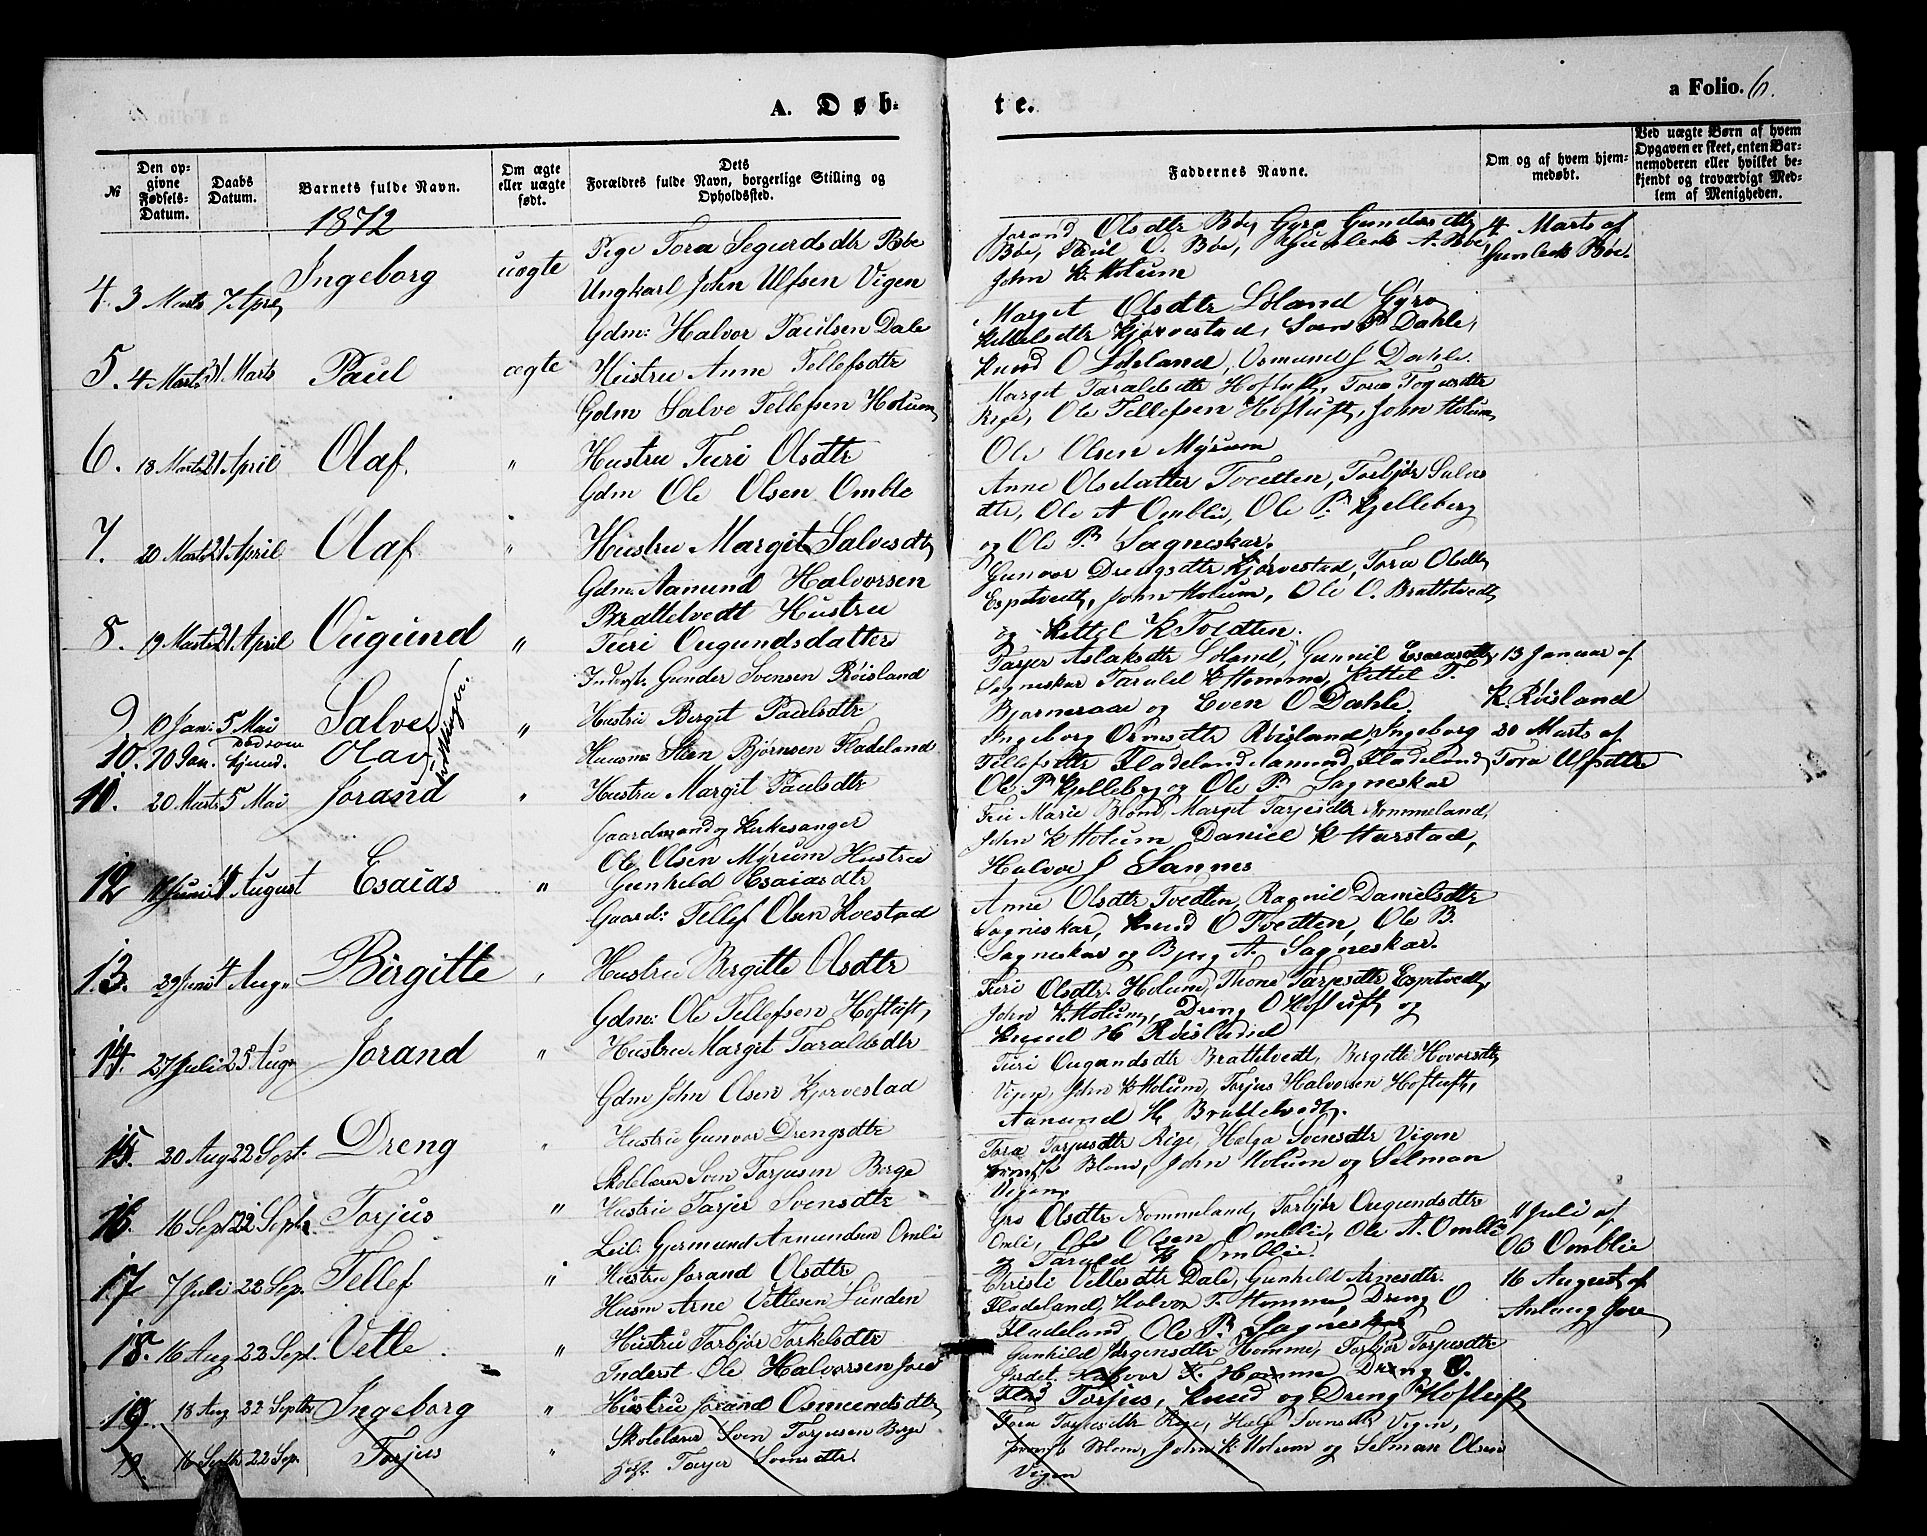 A. Døb-
№
Den opgivne Fødsels-Datum.
Daabs Datum.
Barnets fulde Navn.
Om ægte eller uægte født.
Dets Forældres fulde Navn, borgerlige Stilling og Opholdssted.
1872
4. 3 Marts 7 April Ingeborg uægte Pige Tora Segurdsdtr Bøe
Ungkarl John Ulfsen Vigen
5. 4 Marts 31 Marts Paul ægte Gdm: Halvor Paulsen Dale
Hustru Anne Tellefsdtr
6. 18 Marts 21 April Olaf. " Gdm Salve Tellefsen Holum
Hustru Turi Olsdtr
7. 20 Marts 21 April Olaf " Gdm Ole Olsen Omble
Hustru Margit Salvesdtr
8. 19 Marts 21 April Ougund " Gdm. Aamund Halvorsen
Brattelvedt Hustru
Turi Ougundsdatter
9 10 Jan: 5 Mai Salve } Tvillinger. " Inderst Gunder Svensen Røisland
Hustru Bergit Paulsdtr
10. 10 Jan. Død som hjemd. Olav
11. 20 Marts 5 Mai Jorand " Huusm Sten Bjørnsen Fladeland
Hustru Margit Paulsdtr
12 11 Juni 4 August Esaias " Gaardmand og Kirkesanger
Ole Olsen Myrum Hustru
Gunhild Esaiasdtr
13. 29 Juni 4 Aug. Birgitte " Gaard: Tellef Olsen Kvestad
Hustru Bergitte Olsdtr
14. 27 Juli 25 Aug Jorand " Gdm: Ole Tellefsen Hoftuft,
Hustru Margit Taraldsdtr
15. 20 Aug 22 Sept. Dreng " Gdm John Olsen Kjørvestad
Hustru Gunvor Drengsdtr
16. 16 Sept 22 Sept. Torjus " Skolelærer Sven Torjusen Berge
Hustru Tarjer Svensdtr
17. 7 Juli 22 Sep. Tellef " Leil: Gjermund Aamundsen Omli
Hustru Jorand Olsdtr
18. 16 Aug 22 Sept. Vetle. " Husm Arne Vettesen Lunden
Hustru Torbjør Torkelsdtr
19. 18 Aug 22 Septbr Ingeborg " Inderst Ole Halvorsen
Hustru Jorand Osmundsdtr
19. 16 Septb 22 Sep. Torjus " Skolelærer Sven Torjusen Berge
Tarjer Svensdtr
te.
a Folio. 6.
Faddernes Navne.
Om og af hvem hjemmedøbt.
Ved uægte Børn af hvem Opgaven er skeet, enten Barnemoderen eller hvilket bekjendt og troværdigt Medlem af Menigheden.
Jorand Olsdtr Bøe, Gyro Gundersdtr 4 Marts af
Bøe, Paul O. Bøe, Gunlek A. Bøe, Gunlek Bøe.
John K. Holum
Marget Olsdtr Løland Gyro
Kittelsdtr Kjørvestad, Sven P Dahle,
Knud O Løland, Osmund J Dahle.
Marget Taraldsdtr Hoftuft, Tora Togusdtr
Rige, Ole Tellefsen Hoftuft, John Holum
Ole Olsen Myrum
Anne Olsdatter Tvedten, Torbjør Salves
dtr, Ole A Omblie, Ole P. Kjelleberg
og Ole P. Sagneskar.
Gunvor Drengsdtr Kjørvestad, Tora Olsdtr
Espetvedt, John Holum, Ole O. Brattelvedt
og Kittel K Tvedten.
Tarjer Aslaksdtr Løland, Gunnil Esaiasdtr 13 Januar af
Sagneskar Tarald K Homme, Kittil T. K Røisland
Bjorneraae og Even O Dahle.
Ingeborg Ormsdtr Røisland, Ingeborg 20 Marts af
Tellefsdtr Fladeland Aamund Fladeland Tora Ulfsdtr
Ole P Kjelleberg og Ole P. Sagneskar
Marie Blom, Margit Tarjesdtr Nommeland,
John K Holum, Daniel K Harstad,
Halvor J Sannes
Anne Olsdtr Tvedten, Ragnil Danielsdtr
Sagneskar, Knud O Tvedten, Ole B.
Sagneskar og Bjug A. Sagneskar.
Turi Olsdtr. Holum, Thone Tarjesdtr Espetvedt,
John K. Holum, Dreng O Hoftuft og
Knud H Røisland
Turi Ougundsdtr Brattelvedt, Bergitte Hovorsdtr
Vigen, John K Holum, Torjus Halvorsen Hoftuft,
Aamund H. Brattelvedt.
Tora Torjusdtr Rige, Helga Svensdtr Vigen
Blom, John Holum og Selman
Vigen
Gro Olsdtr Nommeland, Torbjør Ougundsdtr 11 Juli af
Omli, Ole Olsen Omblie, Ole A. Omblie Ole Omblie
og Tarald K Omblie.
Christi Vettesdtr Dale, Gunhild Arnesdtr. 16 August af
Fladeland, Halvor T. Homme, Dreng O
Fladeland, Ole P. Sagneskar
Gunhild Jørgensdtr Homme, Torbjør Torjusdtr
Halvor T. Homme Dreng O.
Torjus, Knud og Dreng Hoftuft
Tora Torjusdtr Rige, Helga Svensdtr Vigen,
Blom, John K Holum og Selman Olsen
Vigen